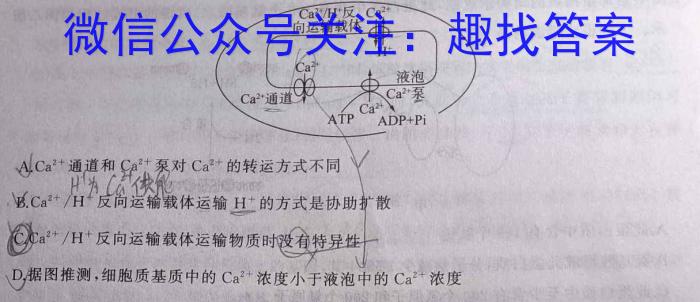 Ca²⁺/H⁺反 Ca²⁺
向运输载体
微信公众号关注：趣找答案
H⁺
Ca²⁺
液泡
Ca²⁺通道
Ca²⁺泵
Ca²⁺
ATP
ADP+Pi
A.Ca²⁺通道和Ca²⁺泵对Ca²⁺的转运方式不同
H⁺为Ca²⁺供能
B.Ca²⁺/H⁺反向运输载体运输H⁺的方式是协助扩散
C.Ca²⁺/H⁺反向运输载体运输物质时没有特异性
D.据图推测,细胞质基质中的Ca²⁺浓度小于液泡中的Ca²⁺浓度